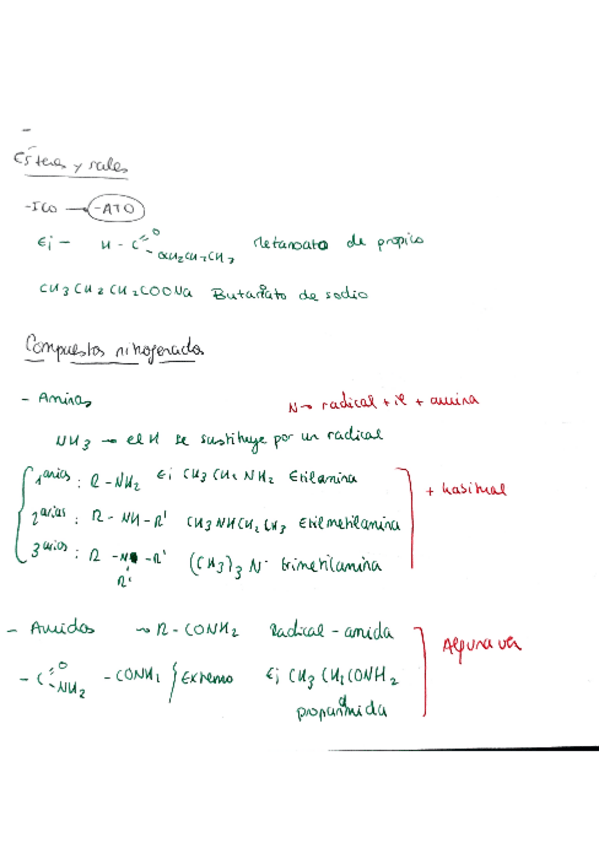 -
Ésteres y sales
-ICO → -ATO
Ej - H - C =O - OCH2CH2CH3 Metanoato de propilo
CH3CH2CH2COONa Butanoato de sodio
Compuestos nitrogenados
- Aminas N → radical + il + amina
NH3 → el H se sustituye por un radical
1arias : R - NH2 Ej CH3CH2NH2 Etilamina + habitual
2arias : R - NH - R' CH3NHCH2CH3 Etilmetilamina
3arios : R - N - R' (CH3)3N trimetilamina
R'
- Amidas → R - CONH2 Radical - amida Alguna vez
- C =O - NH2 - CONH2 } Extremo Ej CH3CH2CONH2
propanamida